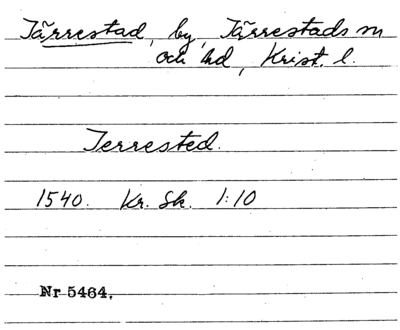 Tärrestad, by, Tärrestads sn
och hd, Krist. l.
Terrested.
1540. Kr. Sk. 1:10
Nr 5464.